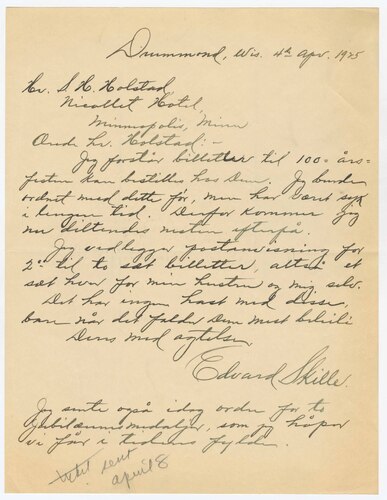 Drummond, Wis. 4th Apr. 1925
Hr. S. H. Holstad,
Nicollet Hotel,
Minneapolis, Minn
Ærede hr. Holstad:-
Jeg forstår billetter til 100-års-
festen kan bestilles hos Dem. Jeg burde
ordnet med dette før, men har været syk
i lengere tid. Derfor kommer jeg
nu diltendes nesten efterpå.
Jeg vedlegger postanvisning for
2.00 til to sæt billetter, altså et
sæt hver for min hustru og mig selv.
Det har ingen hast med disse,
bare når det falder Dem mest beleili
Deres med agtelse,
Edvard Skille.
Jeg sente også idag ordre for to
jubilæumsmedaljer, som jeg håper
vi får i tidens fylde.
sent
april 8